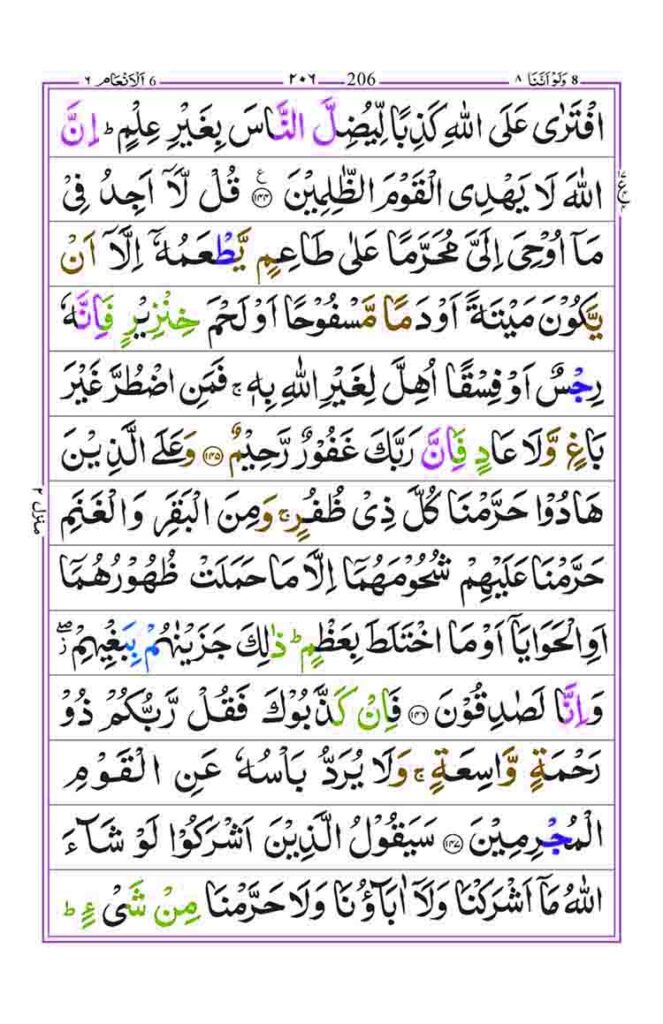 8 وَلَوْ اَنَّنَا ٨ 206 ٢٠٦ 6 اَلْاَنْعَام ٦
افْتَرٰى عَلَى اللّٰهِ كَذِبًا لِّيُضِلَّ النَّاسَ بِغَيْرِ عِلْمٍ ؕ اِنَّ
اللّٰهَ لَا يَهْدِى الْقَوْمَ الظّٰلِمِيْنَ ۧ ﴿۱۴۴﴾ قُلْ لَّاۤ اَجِدُ فِىْ
مَاۤ اُوْحِىَ اِلَىَّ مُحَرَّمًا عَلٰى طَاعِمٍ يَّطْعَمُهٗۤ اِلَّاۤ اَنْ
يَّكُوْنَ مَيْتَةً اَوْ دَمًا مَّسْفُوْحًا اَوْ لَحْمَ خِنْزِيْرٍ فَاِنَّهٗ
رِجْسٌ اَوْ فِسْقًا اُهِلَّ لِغَيْرِ اللّٰهِ بِهٖ ۚ فَمَنِ اضْطُرَّ غَيْرَ
بَاغٍ وَّلَا عَادٍ فَاِنَّ رَبَّكَ غَفُوْرٌ رَّحِيْمٌ ﴿۱۴۵﴾ وَعَلَى الَّذِيْنَ
هَادُوْا حَرَّمْنَا كُلَّ ذِىْ ظُفُرٍ ۚ وَمِنَ الْبَقَرِ وَالْغَنَمِ
حَرَّمْنَا عَلَيْهِمْ شُحُوْمَهُمَاۤ اِلَّا مَا حَمَلَتْ ظُهُوْرُهُمَاۤ
اَوِ الْحَوَايَاۤ اَوْ مَا اخْتَلَطَ بِعَظْمٍ ؕ ذٰلِكَ جَزَيْنٰهُمْ بِبَغْيِهِمْ ۖ ز
وَاِنَّا لَصٰدِقُوْنَ ﴿۱۴۶﴾ فَاِنْ كَذَّبُوْكَ فَقُلْ رَّبُّكُمْ ذُوْ
رَحْمَةٍ وَّاسِعَةٍ ۚ وَلَا يُرَدُّ بَاْسُهٗ عَنِ الْقَوْمِ
الْمُجْرِمِيْنَ ﴿۱۴۷﴾ سَيَقُوْلُ الَّذِيْنَ اَشْرَكُوْا لَوْ شَآءَ
اللّٰهُ مَاۤ اَشْرَكْنَا وَلَاۤ اٰبَآؤُنَا وَلَا حَرَّمْنَا مِنْ شَىْءٍ ؕ
منزل ٢